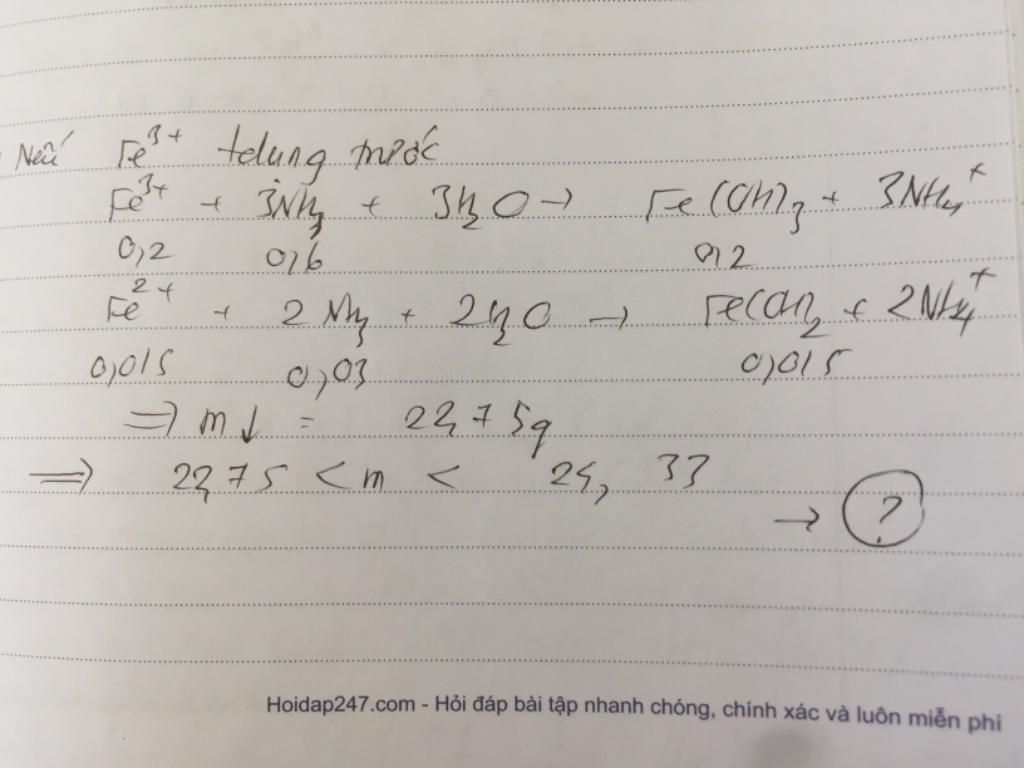 Nếu Fe³⁺ tdung trước
Fe³⁺ + 3NH₃ + 3H₂O → Fe(OH)₃ + 3NH₄⁺
0,2 0,6 0,2
Fe²⁺ + 2NH₃ + 2H₂O → Fe(OH)₂ + 2NH₄⁺
0,015 0,03 0,015
⇒ m↓ = 22,75g
⇒ 22,75 < m < 24,33
→ ?
Hoidap247.com - Hỏi đáp bài tập nhanh chóng, chính xác và luôn miễn phí